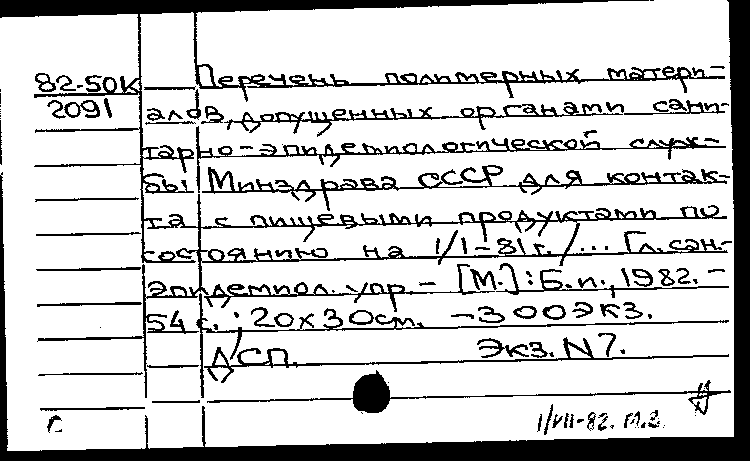 82-50К Перечень полимерных матери-
2091 алов, допущенных органами сани-
тарно-эпидемиологической служ-
бы Минздрава СССР для контак-
та с пищевыми продуктами по
состоянию на 1/I-81г. /... Гл. сан.-
эпидемиол. упр. - [М.]: Б.и., 1982. -
54 с.; 20х30см. - 300экз.
ДСП. Экз. N7.
с 1/VII-82. М.З.